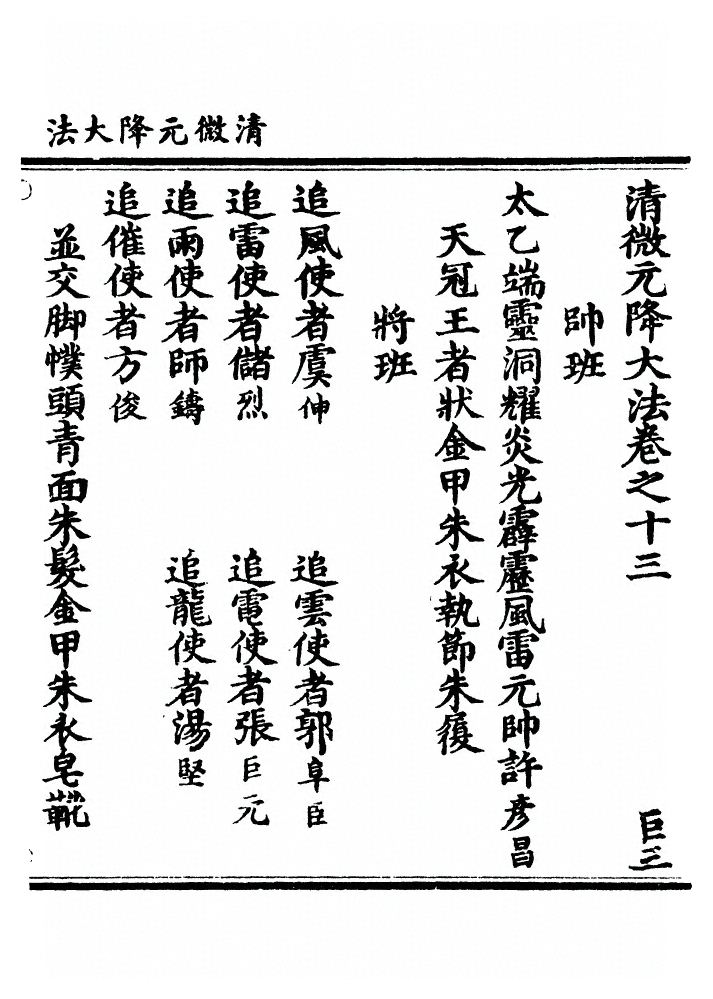 清微元降大法
清微元降大法卷之十三　巨三
帥班
太乙端靈洞耀炎光霹靂風雷元帥許彥昌
天冠王者狀金甲朱衣執節朱履
將班
追風使者虞伸　追雲使者郭阜臣
追雷使者儲烈　追電使者張巨元
追雨使者師鑄　追龍使者湯堅
追催使者方俊
並交脚幞頭青面朱髮金甲朱衣皂靴